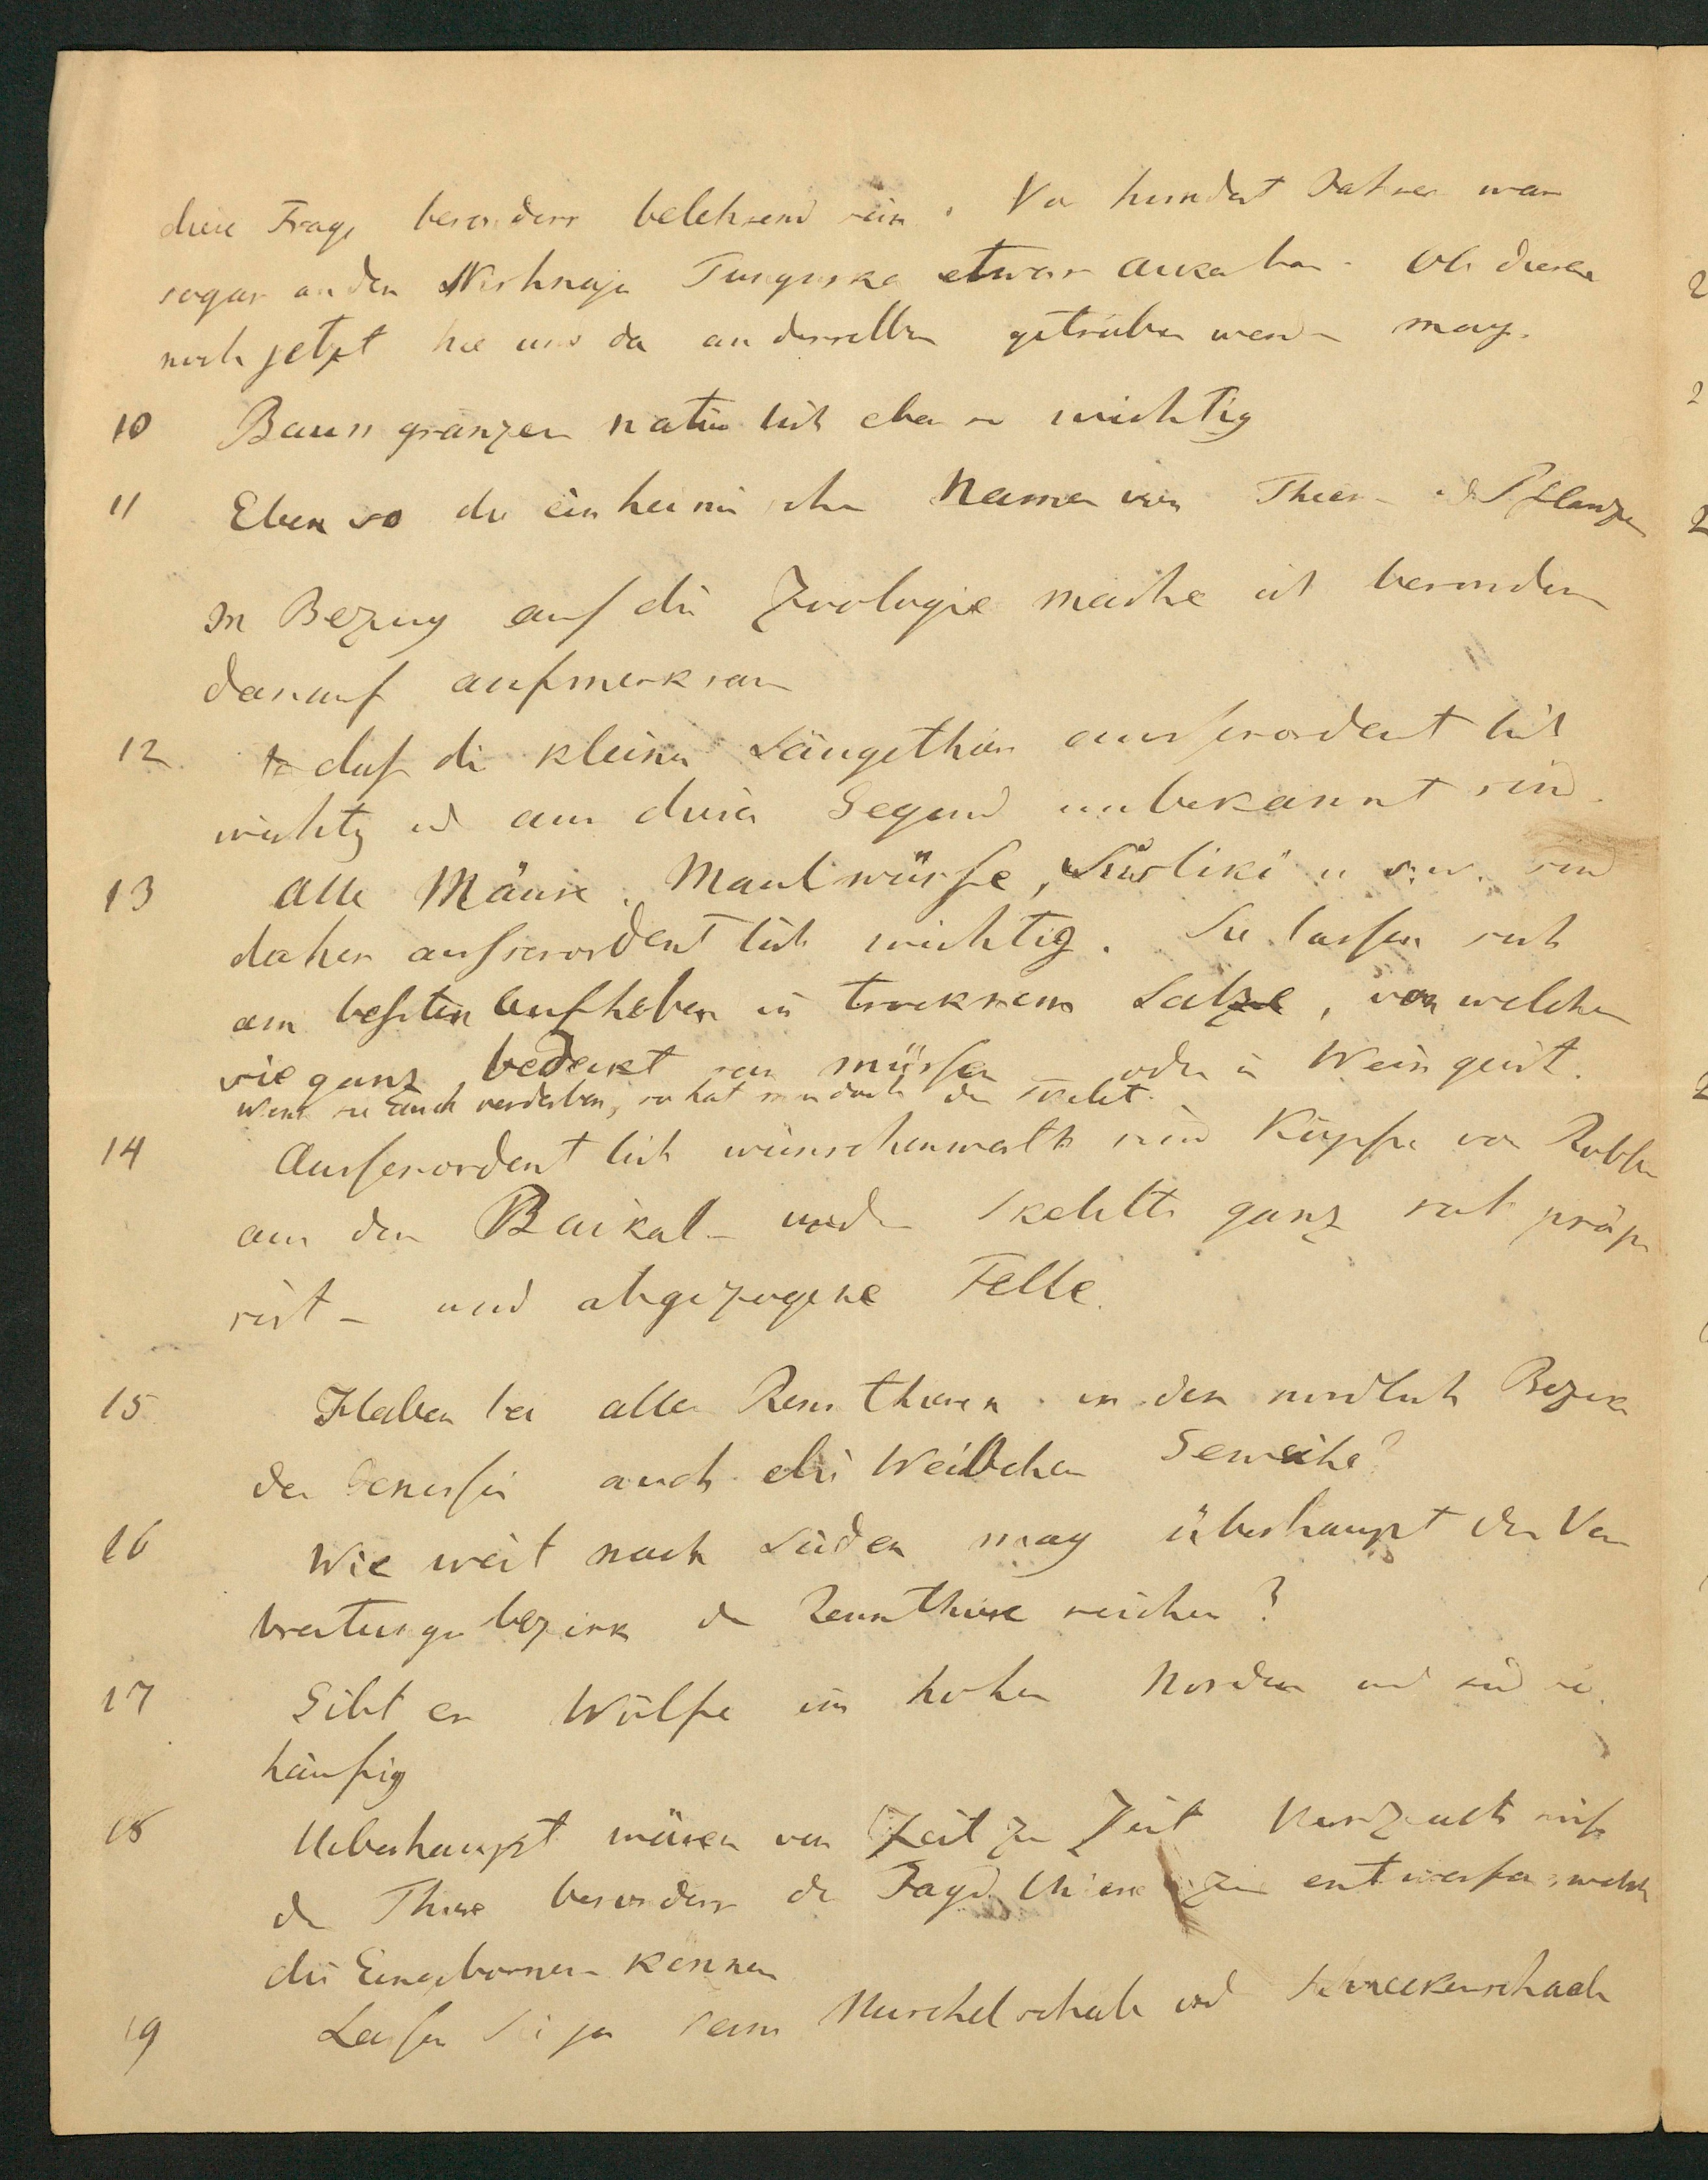 diese Frage besonders belehrend sein. Vor hundert Jahren war
sogar an der Nishnaja Tunguska etwas Ackerbau. Ob dieser
noch jetzt hie und da an derselben getrieben werden mag.
10 Baumgränzen natürlich eben so wichtig
11 Eben so die einheimischen Namen von Thieren u Pflanzen
In Bezug auf die Zoologie mache ich besonders
darauf aufmerksam
12 daß die kleinen Säugethiere ausserordentlich
wichtig und aus dieser Gegend unbekannt sind.
13 Alle Mäuse, Maulwürfe, Susliki u. s. w. sind
daher ausserordentlich wichtig. Sie lassen sich
am besten aufheben in trocknem Salze, von welchem
sie ganz bedeckt sein müssen – oder in Weingeist.
Wenn sie auch verderben, so hat man doch den Skelet.
14 Ausserordentlich wünschenwerth sind Köpfe von Robben
aus dem Baikal – und Skelette ganz roh präpa
rirt – und abgezogene Felle.
15 Haben bei allen Rennthieren in den nordlich Bezirk
des Jenissei auch die Weibchen Geweihe?
16 Wie weit nach Süden mag überhaupt der Ver
breitungsbezirk der Rennthiere reichen?
17 Gibt es Wölfe im hohen Norden und sind sie
häufig
18 Ueberhaupt wären von Zeit zu Zeit Verzeichnisse
der Thiere besonders der Jagdthiere zu entwerfen, welche
die Eingebornen kennen
19 Lassen Sie ja keine Muschelschale und Schneckenschaale